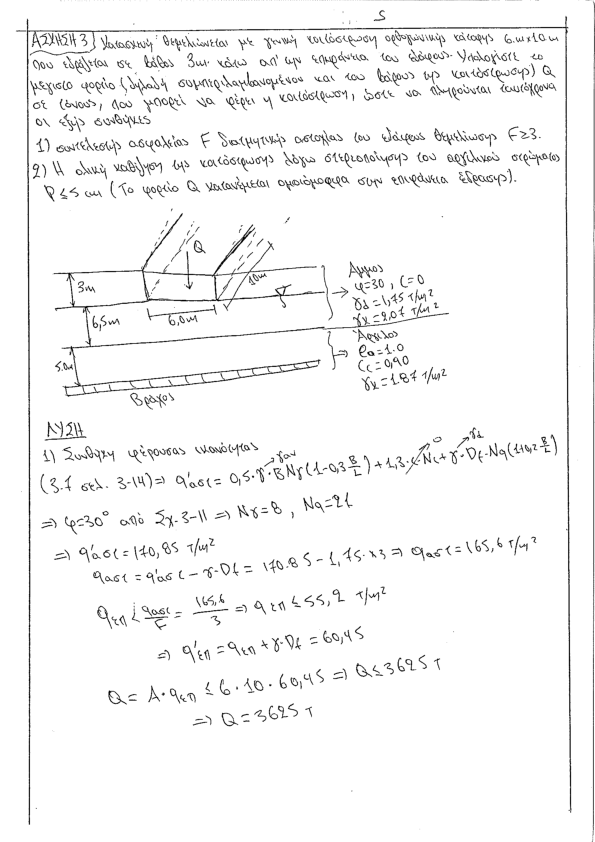 5
ΑΣΚΗΣΗ 3) Κατασκευή θεμελιώνεται με γενική κοιτόστρωση ορθογωνικής κάτοψης 6m x 10m
που εδράζεται σε βάθος 3m κάτω απ' την επιφάνεια του εδάφους. Υπολογίστε το
μέγιστο φορτίο (δηλαδή συμπεριλαμβανομένου και του βάρους της κοιτόστρωσης) Q
σε τόνους, που μπορεί να φέρει η κοιτόστρωση, ώστε να πληρούνται ταυτόχρονα
οι εξής συνθήκες
1) συντελεστής ασφαλείας F διατμητικής αστοχίας του εδάφους θεμελίωσης F≥3.
2) Η ολική καθίζηση της κοιτόστρωσης λόγω στερεοποίησης του αργιλικού στρώματος
ρ ≤ 5 cm (Το φορτίο Q κατανέμεται ομοιόμορφα στην επιφάνεια έδρασης).
Q
3m
10m
6,0m
6,5m
5.0m
Βράχος
Άμμος
φ=30, C=0
γd = 1,75 T/m²
γk = 2.07 T/m²
Άργιλος
eo = 1.0
Cc = 0,90
γk = 1.87 T/m²
ΛΥΣΗ
1) Συνθήκη φέρουσας ικανότητας
(3.7 σελ. 3-14) => q'αστ = 0,5·γ·B Nγ (1-0,3 B/L) + 1,3·c·Nc + γ·Df·Nq (1+0,2 B/L)
γαν
0
γd
=> φ=30° από Σχ. 3-11 => Nγ=8 , Nq=21
=> q'αστ = 170,85 T/m²
qαστ = q'αστ - γ·Df = 170.85 - 1,75·x3 => qαστ = 165,6 T/m²
qεπ ≤ qαστ/F = 165,6/3 => qεπ ≤ 55,2 T/m²
=> q'επ = qεπ + γ·Df = 60,45
Q = A·qεπ ≤ 6·10·60,45 => Q ≤ 3625 T
=> Q = 3625 T